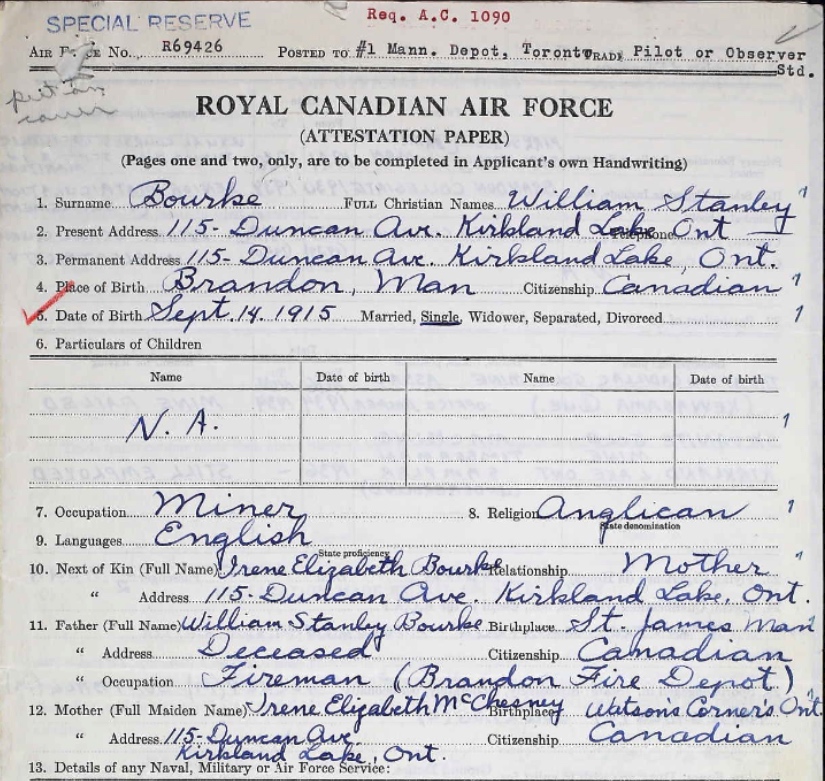 SPECIAL RESERVE
Req. A.C. 1090
AIR FORCE No. R69426 POSTED TO #1 Mann. Depot, Toronto TRADE Pilot or Observer
Std.
put in
ROYAL CANADIAN AIR FORCE
(ATTESTATION PAPER)
(Pages one and two, only, are to be completed in Applicant's own Handwriting)
1. Surname Bourke FULL Christian Names William Stanley
2. Present Address 115- Duncan Av. Kirkland Lake Ont Telephone
3. Permanent Address 115- Duncan Av. Kirkland Lake, Ont.
4. Place of Birth Brandon, Man Citizenship Canadian
5. Date of Birth Sept. 14. 1915 Married, Single, Widower, Separated, Divorced
6. Particulars of Children
Name Date of birth Name Date of birth
N. A.
7. Occupation Miner 8. Religion Anglican
State denomination
9. Languages English
State proficiency
10. Next of Kin (Full Name) Irene Elizabeth Bourke Relationship Mother
" Address 115- Duncan Ave. Kirkland Lake, Ont.
11. Father (Full Name) William Stanley Bourke Birthplace St. James Man
" Address Deceased Citizenship Canadian
" Occupation Fireman (Brandon Fire Depot)
12. Mother (Full Maiden Name) Irene Elizabeth McChesney Birthplace Watson's Corner's Ont.
" Address 115- Duncan Ave Citizenship Canadian
Kirkland Lake, Ont.
13. Details of any Naval, Military or Air Force Service: